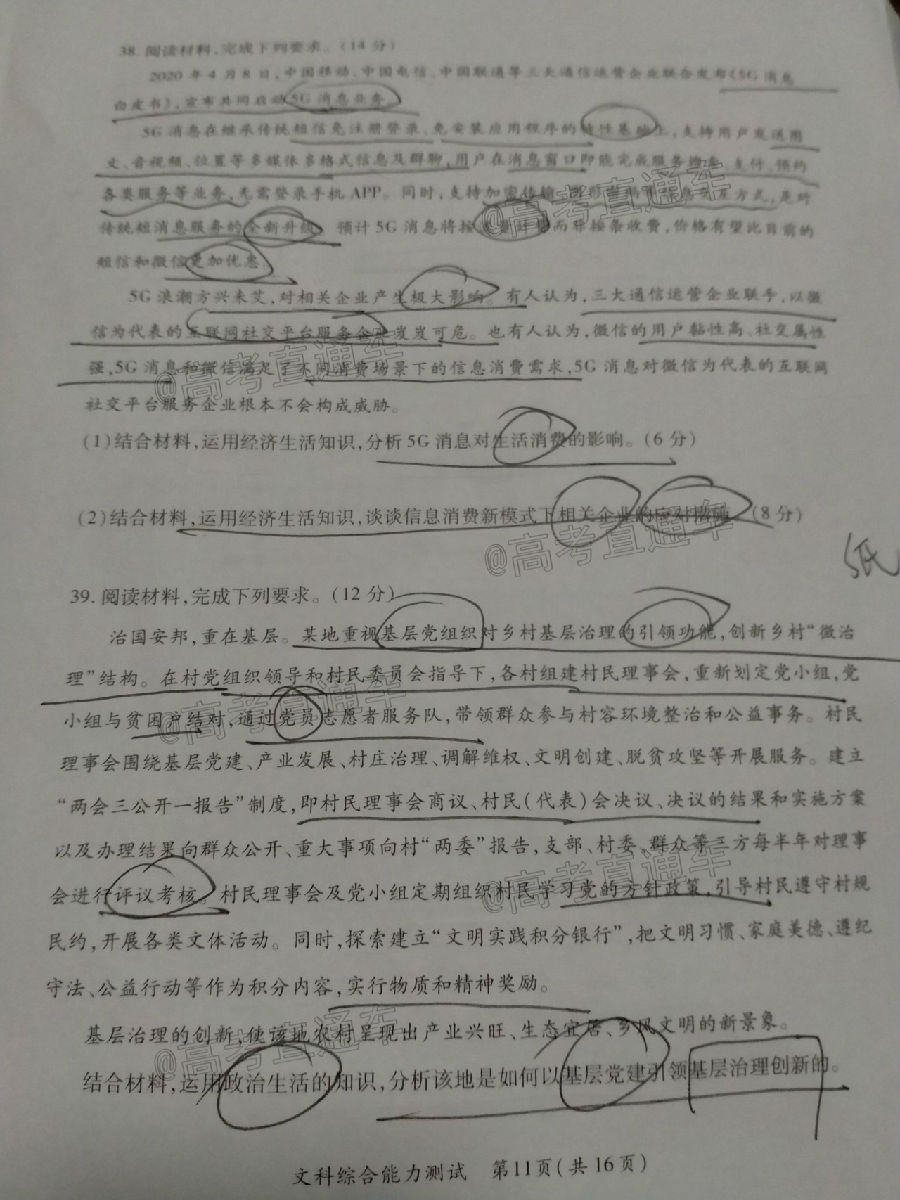 38. 阅读材料,完成下列要求。(14分)
2020年4月8日,中国移动、中国电信、中国联通等三大通信运营企业联合发布《5G消息
白皮书》,宣布共同启动5G消息业务。
5G消息在继承传统短信免注册登录、免安装应用程序的特性基础上,支持用户发送图
文、音视频、位置等多媒体多格式信息及群聊,用户在消息窗口即能完成服务搜索、支付、预约
各类服务等业务,无需登录手机APP。同时,支持加密传输 信息交互方式,是对
传统短消息服务的全新升级。预计5G消息将按流量计费而非按条收费,价格有望比目前的
短信和微信更加优惠。
5G浪潮方兴未艾,对相关企业产生极大影响。有人认为,三大通信运营企业联手,以微
信为代表的互联网社交平台服务企业岌岌可危。也有人认为,微信的用户黏性高、社交属性
强,5G消息和微信满足了不同消费场景下的信息消费需求,5G消息对微信为代表的互联网
社交平台服务企业根本不会构成威胁。
(1)结合材料,运用经济生活知识,分析5G消息对生活消费的影响。(6分)
(2)结合材料,运用经济生活知识,谈谈信息消费新模式下相关企业的应对措施。(8分)
39. 阅读材料,完成下列要求。(12分)
治国安邦,重在基层。某地重视基层党组织对乡村基层治理的引领功能,创新乡村“微治
理”结构。在村党组织领导和村民委员会指导下,各村组建村民理事会,重新划定党小组,党
小组与贫困户结对,通过党员志愿者服务队,带领群众参与村容环境整治和公益事务。村民
理事会围绕基层党建、产业发展、村庄治理、调解维权、文明创建、脱贫攻坚等开展服务。建立
“两会三公开一报告”制度,即村民理事会商议、村民(代表)会决议、决议的结果和实施方案
以及办理结果向群众公开、重大事项向村“两委”报告,支部、村委、群众等三方每半年对理事
会进行评议考核。村民理事会及党小组定期组织村民学习党的方针政策,引导村民遵守村规
民约,开展各类文体活动。同时,探索建立“文明实践积分银行”,把文明习惯、家庭美德、遵纪
守法、公益行动等作为积分内容,实行物质和精神奖励。
基层治理的创新,使该地农村呈现出产业兴旺、生态宜居、乡风文明的新景象。
结合材料,运用政治生活的知识,分析该地是如何以基层党建引领基层治理创新的。
文科综合能力测试 第11页(共16页)
@高考直通车
@高考直通车
@高考直通车
@高考直通车
@高考直通车
@高考直通车